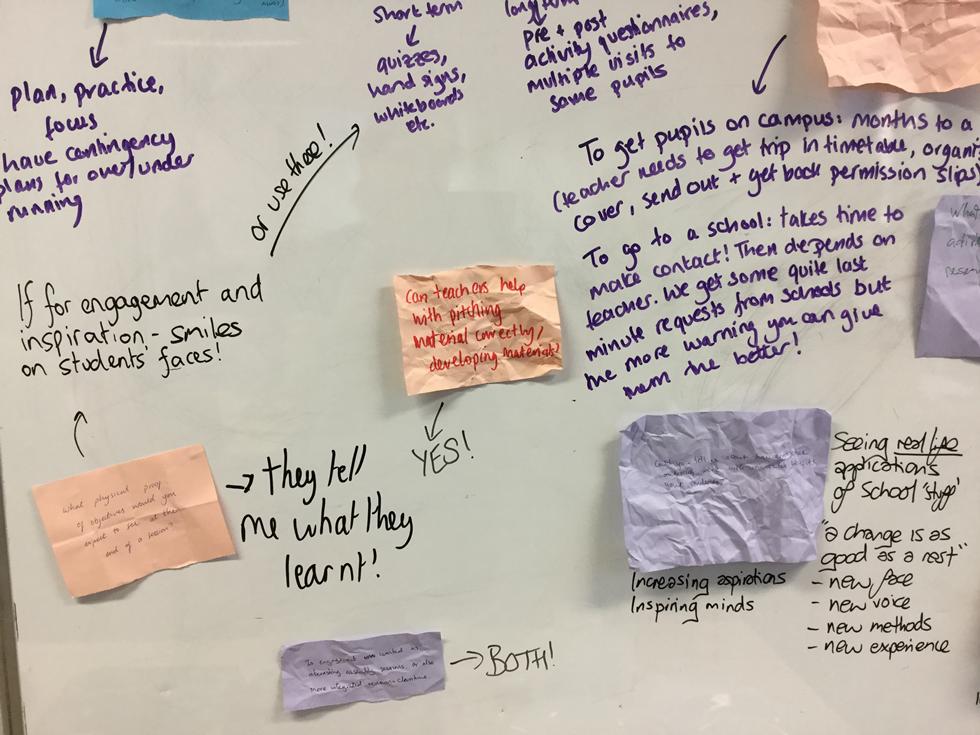 plan, practice,
focus
have contingency
plans for over/under
running
Short term
quizzes,
hand signs,
whiteboards
etc.
long term
pre + post
activity questionnaires,
multiple visits to
same pupils
or use these!
To get pupils on campus: months to a
(teacher needs to get trip in timetable,
cover, send out + get back permission slips)
To go to a school: takes time to
make contact! Then depends on
teacher. We get some quite last
minute requests from schools but
the more warning you can give
them the better!
If for engagement and
inspiration - smiles
on students' faces!
Can teachers help
with pitching
material correctly,
developing materials?
YES!
What physical proof
of objectives would you
expect to see at the
end of a session?
They tell
me what they
learnt!
your students?
Increasing aspirations
Inspiring minds
Seeing real life
applications
of school 'stuff'
"a change is as
good as a rest"
- new face
- new voice
- new methods
- new experience
Is engagement
sessions, or also
more integrated
BOTH!